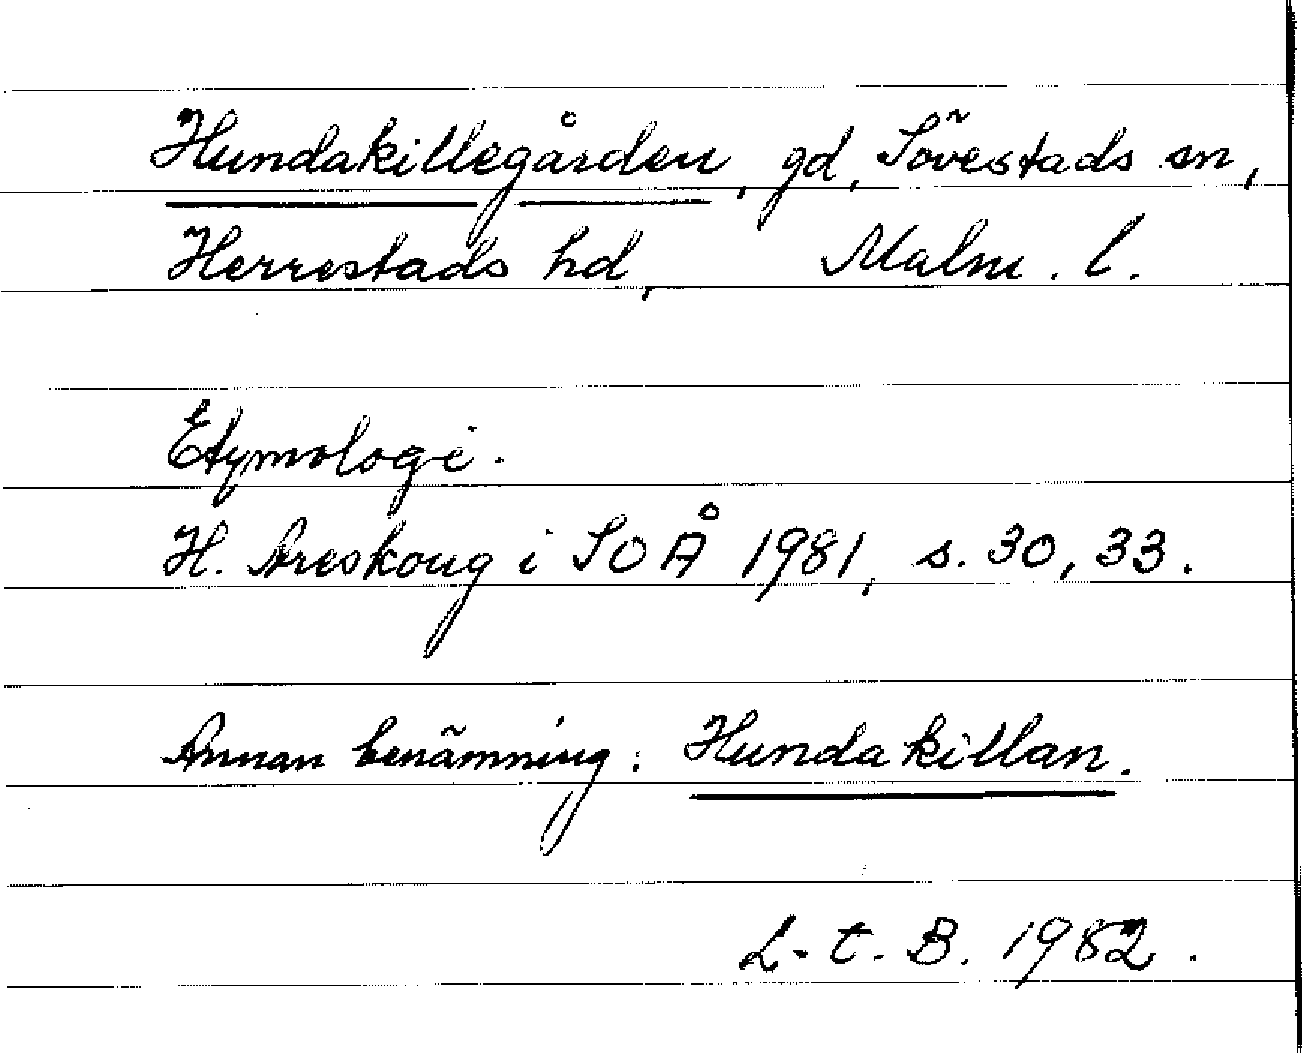 Hundakillegården, gd, Sövestads sn,
Herrestads hd, Malm. l.
Etymologi.
H. Areskoug i SOÅ 1981, s. 30, 33.
Annan benämning: Hundakillan.
L-t. B. 1982.